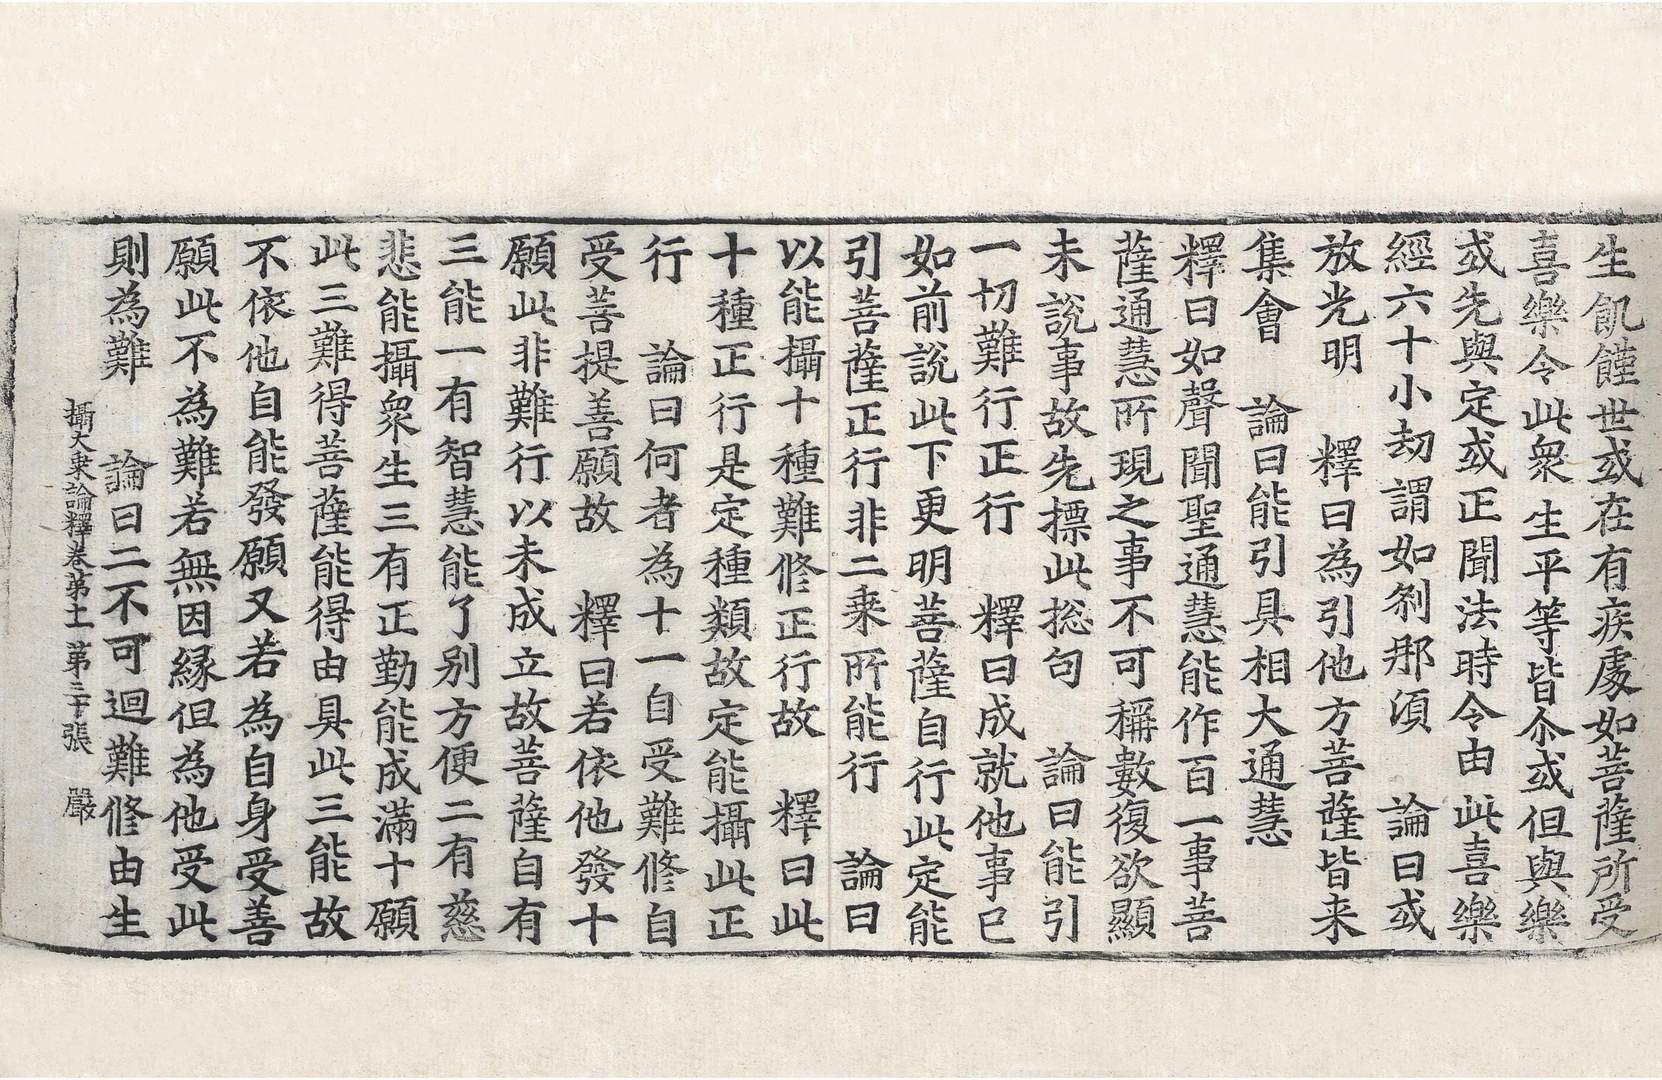 生飢饉世或在有疾處如菩薩所受
喜樂令此衆生平等皆尒或但與樂
或先與定或正聞法時令由此喜樂
經六十小劫謂如剎那湏 論曰或
放光明 釋曰為引他方菩薩皆来
集會 論曰能引具相大通慧
釋曰如聲聞聖通慧能作百一事菩
薩通慧所現之事不可稱數復欲顯
未說事故先摽此捴句 論曰能引
一切難行正行 釋曰成就他事已
如前說此下更明菩薩自行此定能
引菩薩正行非二乗所能行 論曰
以能攝十種難修正行故 釋曰此
十種正行是定種類故定能攝此正
行 論曰何者為十一自受難修自
受菩提善願故 釋曰若依他發十
願此非難行以未成立故菩薩自有
三能一有智慧能了别方便二有慈
悲能攝衆生三有正勤能成滿十願
此三難得菩薩能得由具此三能故
不依他自能發願又若為自身受善
願此不為難若無因緣但為他受此
則為難 論曰二不可迴難修由生
攝大乗論釋卷第十一 第三十張 嚴